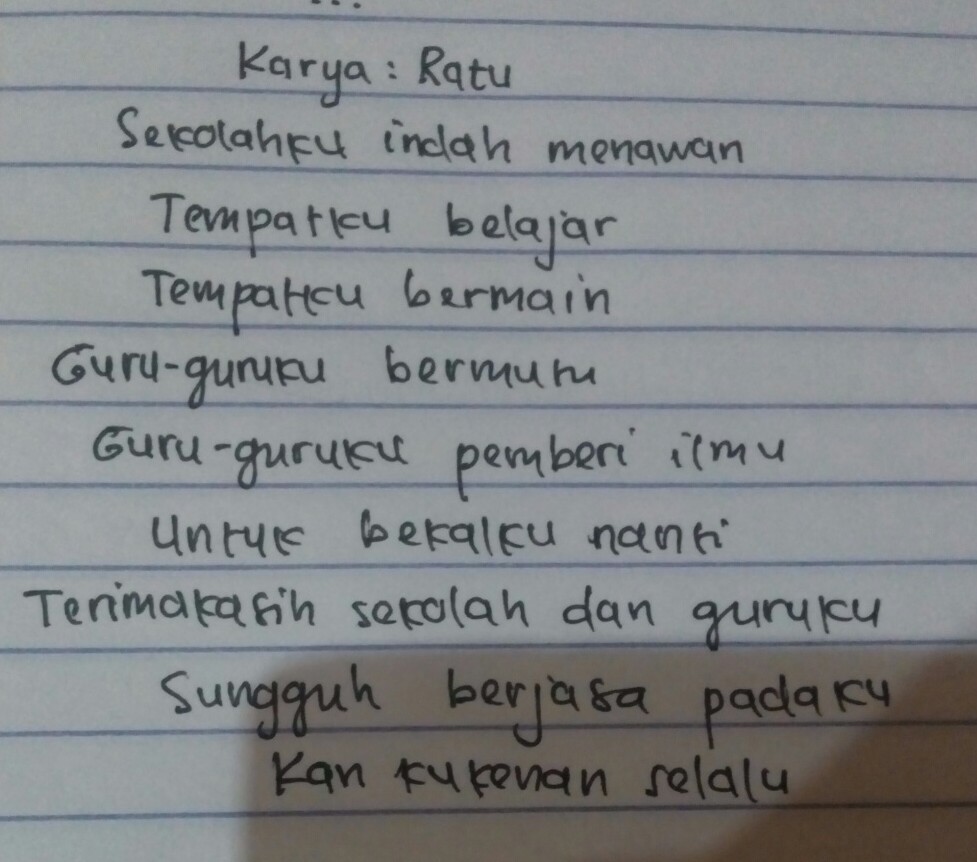 ...
Karya : Ratu
Sekolahku indah menawan
Tempatku belajar
Tempatku bermain
Guru-guruku bermutu
Guru-guruku pemberi ilmu
Untuk bekalku nanti
Terimakasih sekolah dan guruku
Sungguh berjasa padaku
Kan kukenan selalu